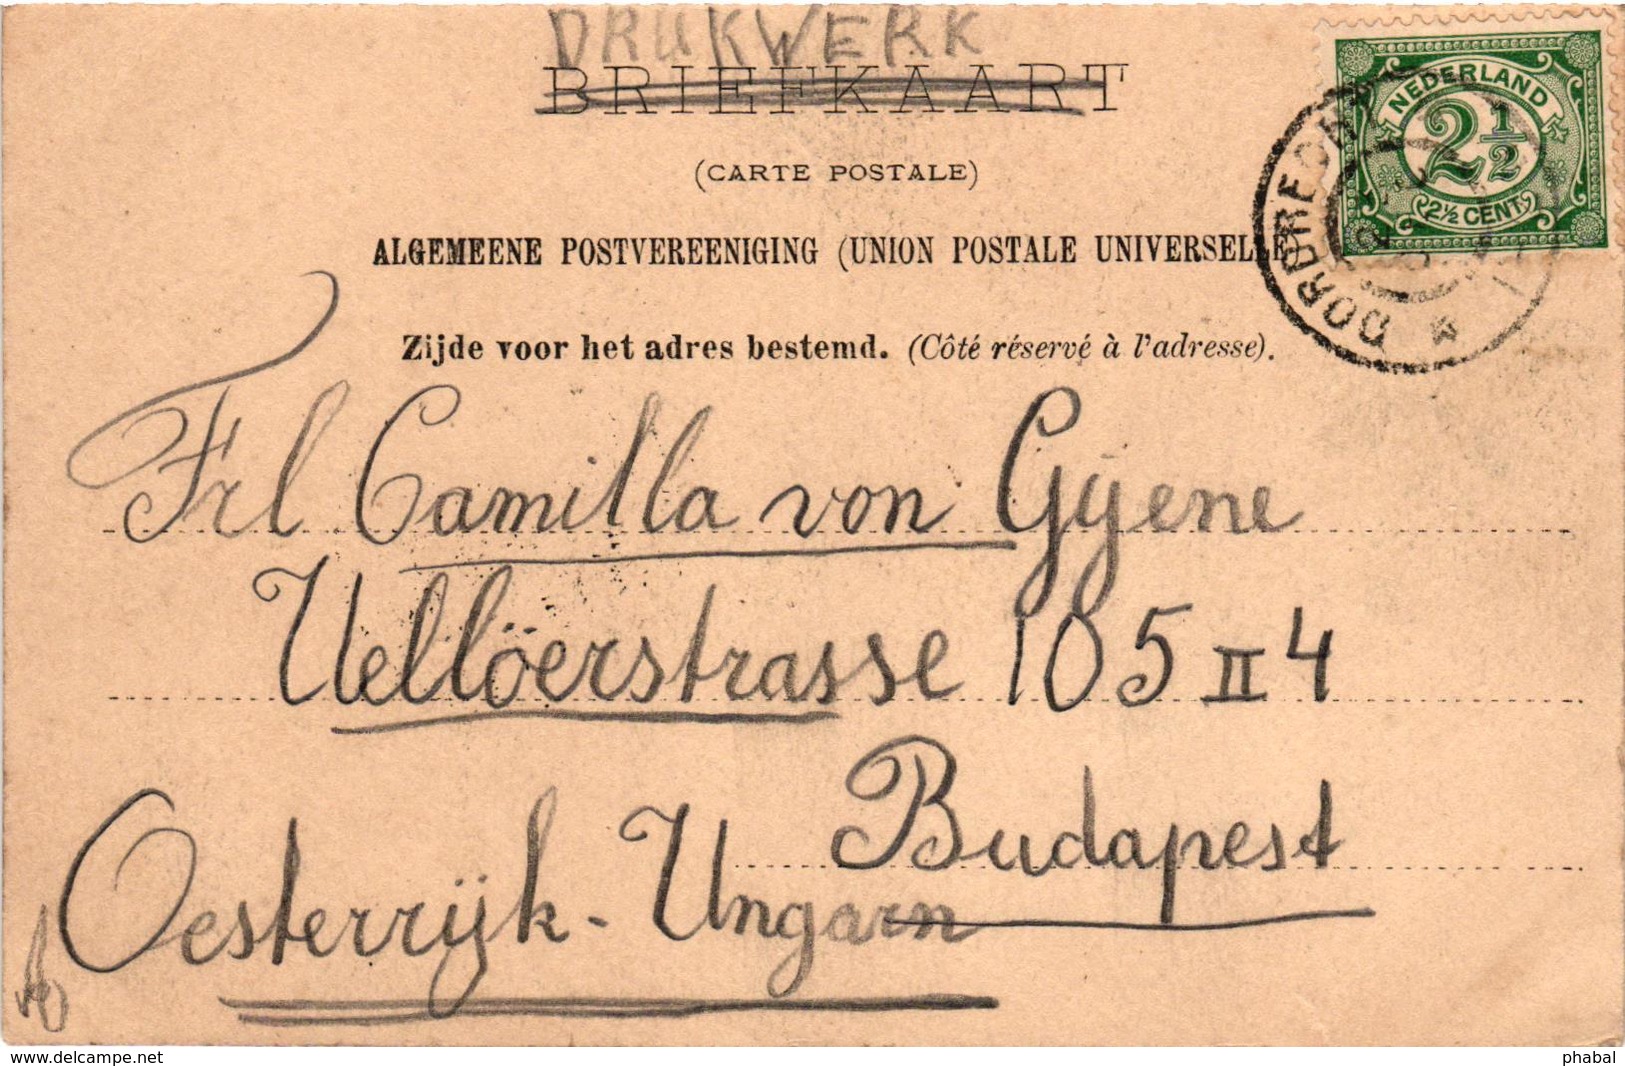 DRUKWERK
BRIEFKAART
(CARTE POSTALE)
ALGEMEENE POSTVEREENIGING (UNION POSTALE UNIVERSELLE)
Zijde voor het adres bestemd. (Côté réservé à l'adresse).
NEDERLAND
2½
2½ CENT
DORDRECHT
Frl Camilla von Gyene
Uellöerstrasse 105 II 4
Budapest
Oesterrijk-Ungarn
www.delcampe.net
phabal